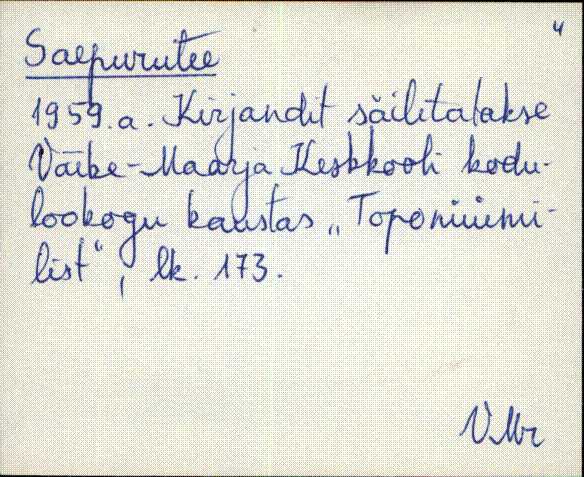 4
Saepurutee
1959.a. Kirjandit säilitatakse
Väike-Maarja Keskkooli kodu-
lookogu kaustas „Toponüümi-
list“, lk. 173.
VMr